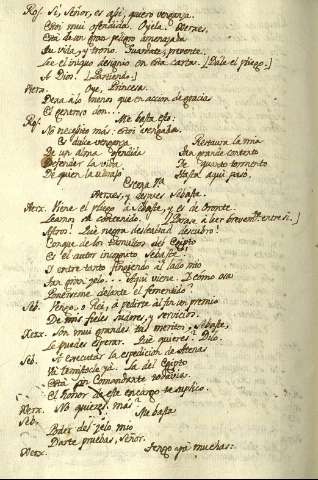 Ros. Sí, Señor, es así, quiero venganza.
Estoi mui ofendida. Oyela. Xerxes.
Está de un gran peligro amenazada
Tu vida, y trono. Guardate, prevente.
Lee el iniquo designio en esta carta. [Dale el pliego.]
A Dios! [Partiendo.]
Xerx. Oye, Princesa.
Dexa á lo menos que en accion de gracias
El generoso don...
Ros. Me basta esto:
No necesito más: estoi vengada.
Es dulce venganza
De un alma ofendida
Defender la vida
De quien la ultrajó
Restaura la mia
Tan grande contento
Te quanto tormento
Hasta aqui pasó.
Escena Vª
Xerxes, y despues Sebaste.
Xerx. Viene el pliego á Sebaste, y es de Oronte.
Leamos su contenido. [Pasa á leer brevemte. entre si.]
Astros! Qué negra deslealtad descubro!
Conque de los tumultos del Egipto
Es el autor incognito Sebaste!
I entre tanto fingiendo al lado mio
Tan gran zelo... Aqui viene. I como osa
Ponerseme delante el fementido?
Seb. Vengo, o Rei, á pedirte al fin un premio
De mis fieles sudores, y servicios.
Xerx. Son mui grandes tus meritos, Sebaste,
Lo puedes esperar. Qué quieres. Dilo.
Seb. A executar la espedicion de Atenas
Vá Temistocle yá. La del Egipto
Está sin Comandante todavia.
El honor de este encargo te suplico.
Xerx. No quieres más?
Seb. Me basta
Poder del zelo mio
Darte pruebas, Señor.
Xerx. Tengo yá muchas: